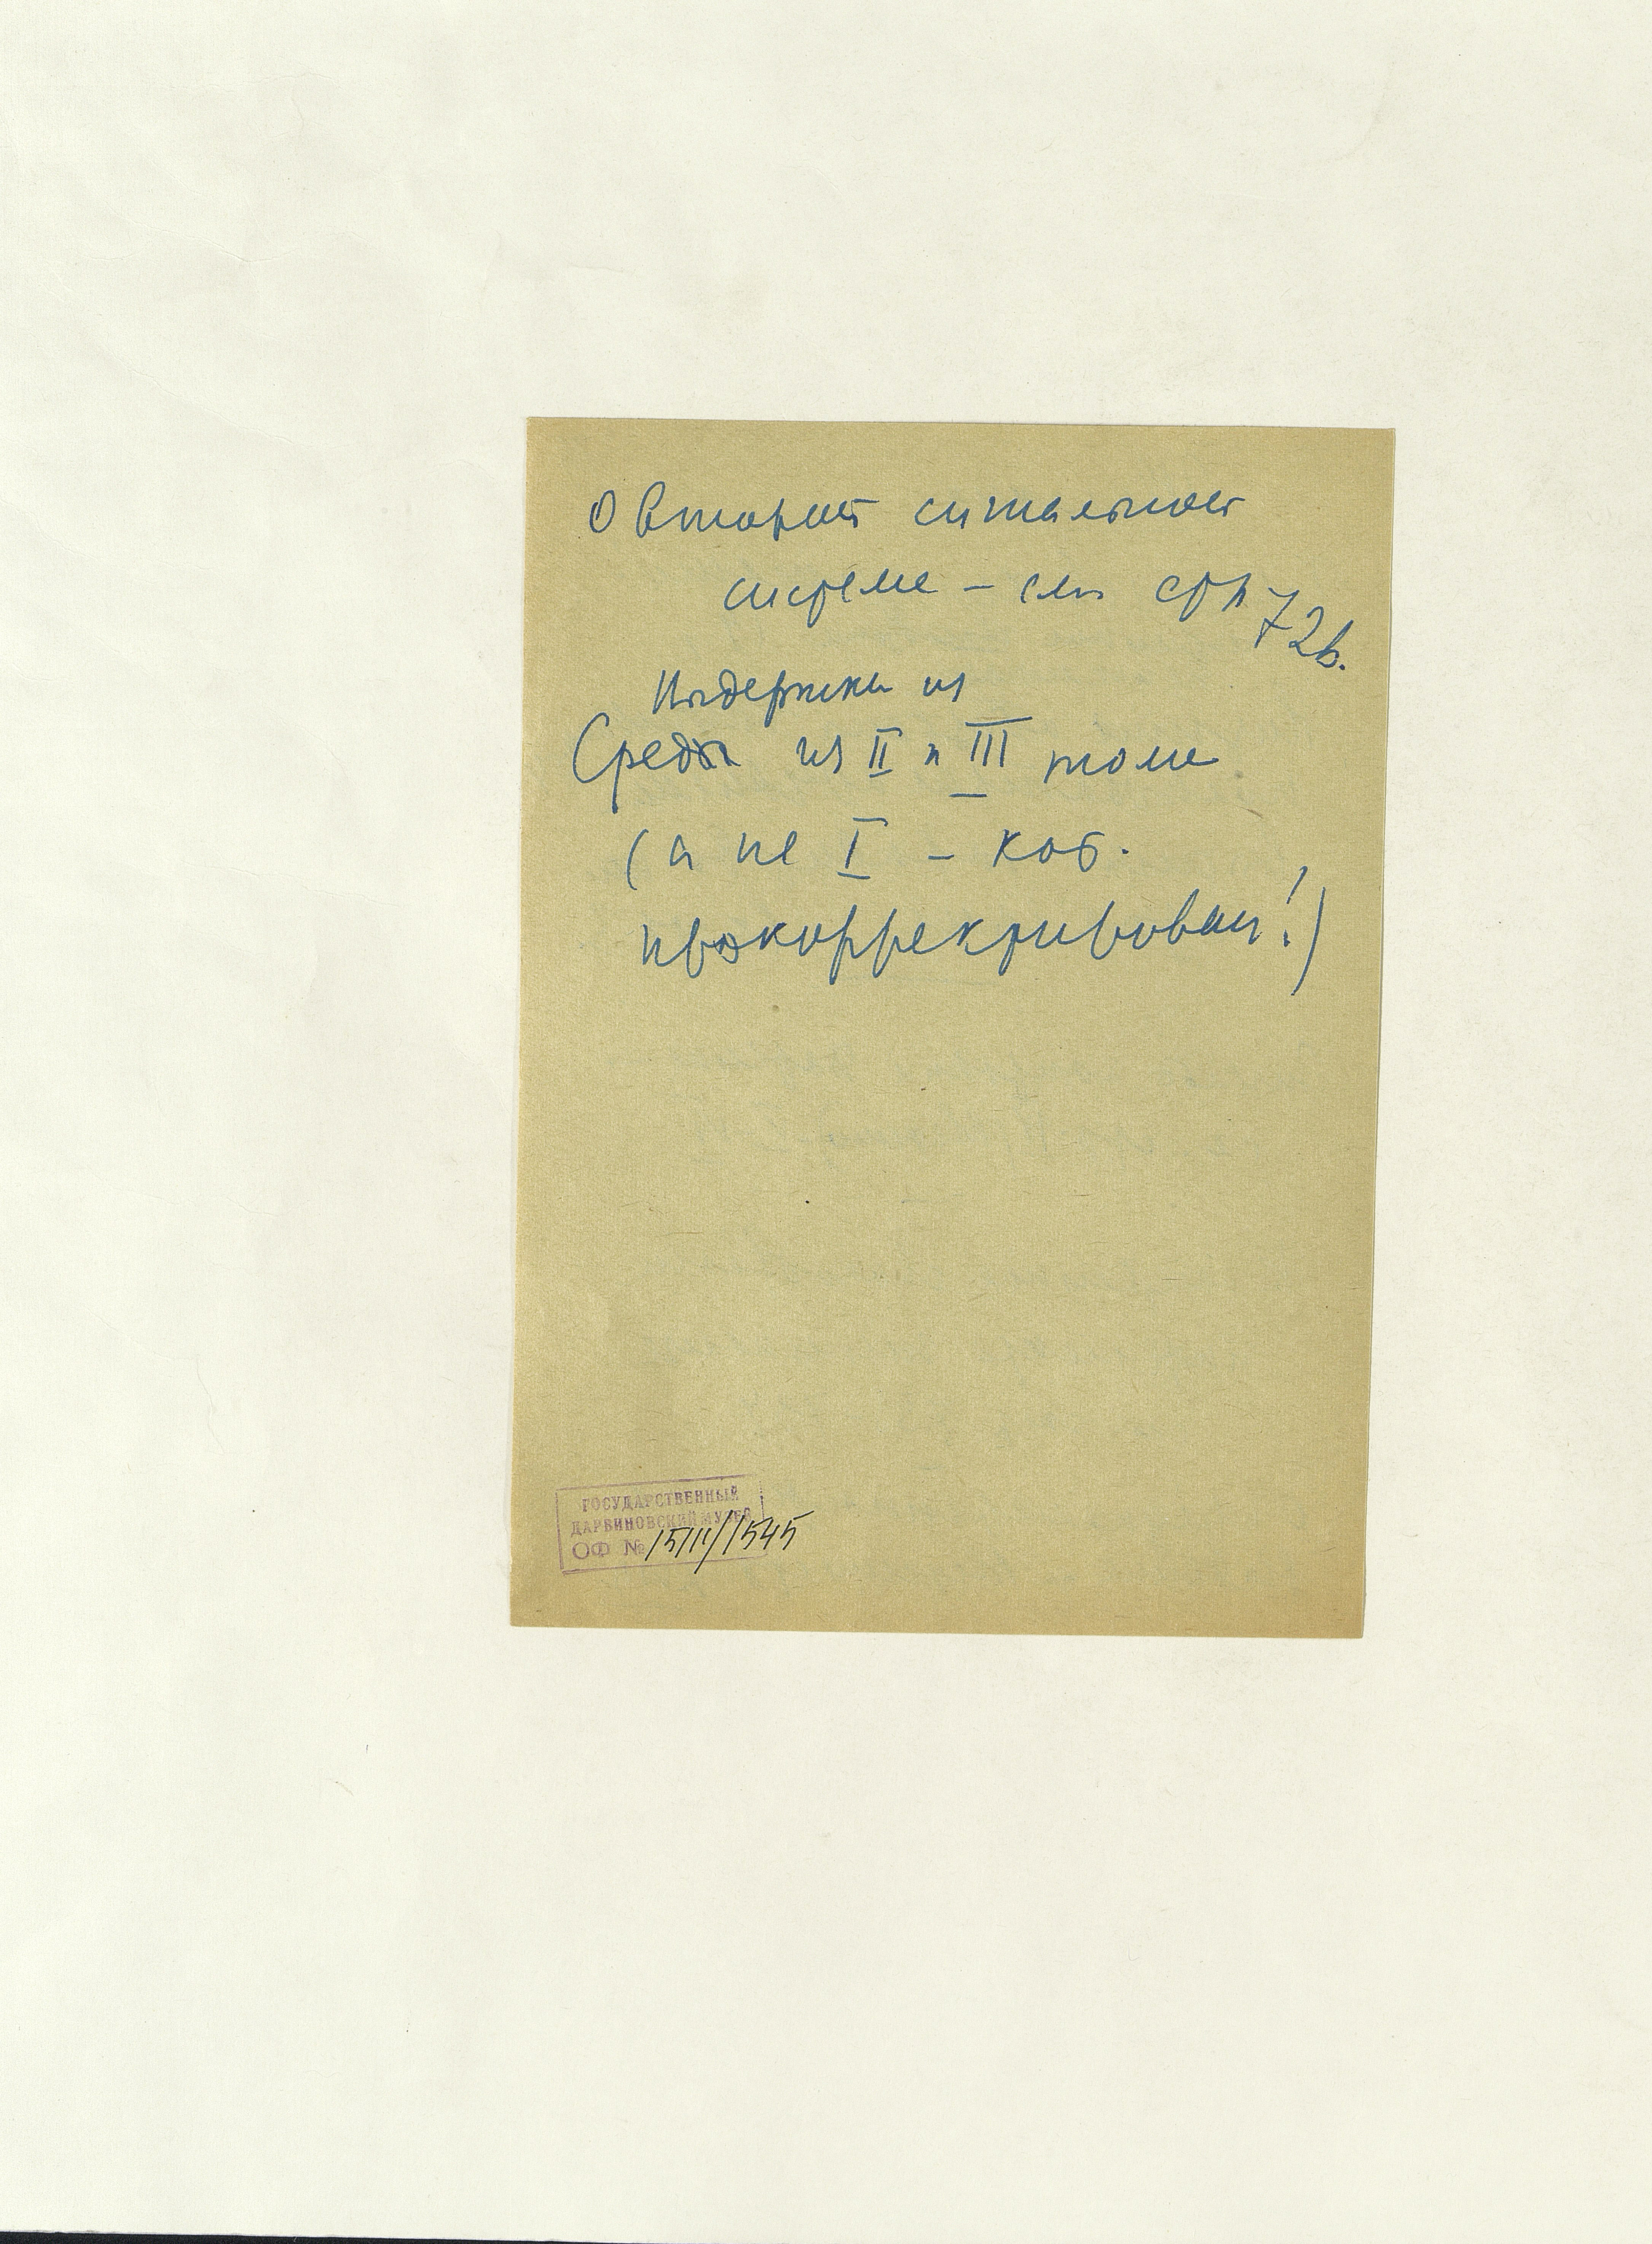 О второй сигнальной
системе – см стр 72b.
Выдержки из
Среды из II и III тома
(а не I – кот.
прокорректирован!)
ГОСУДАРСТВЕННЫЙ
ДАРВИНОВСКИЙ МУЗЕЙ
ОФ № 15111/1545